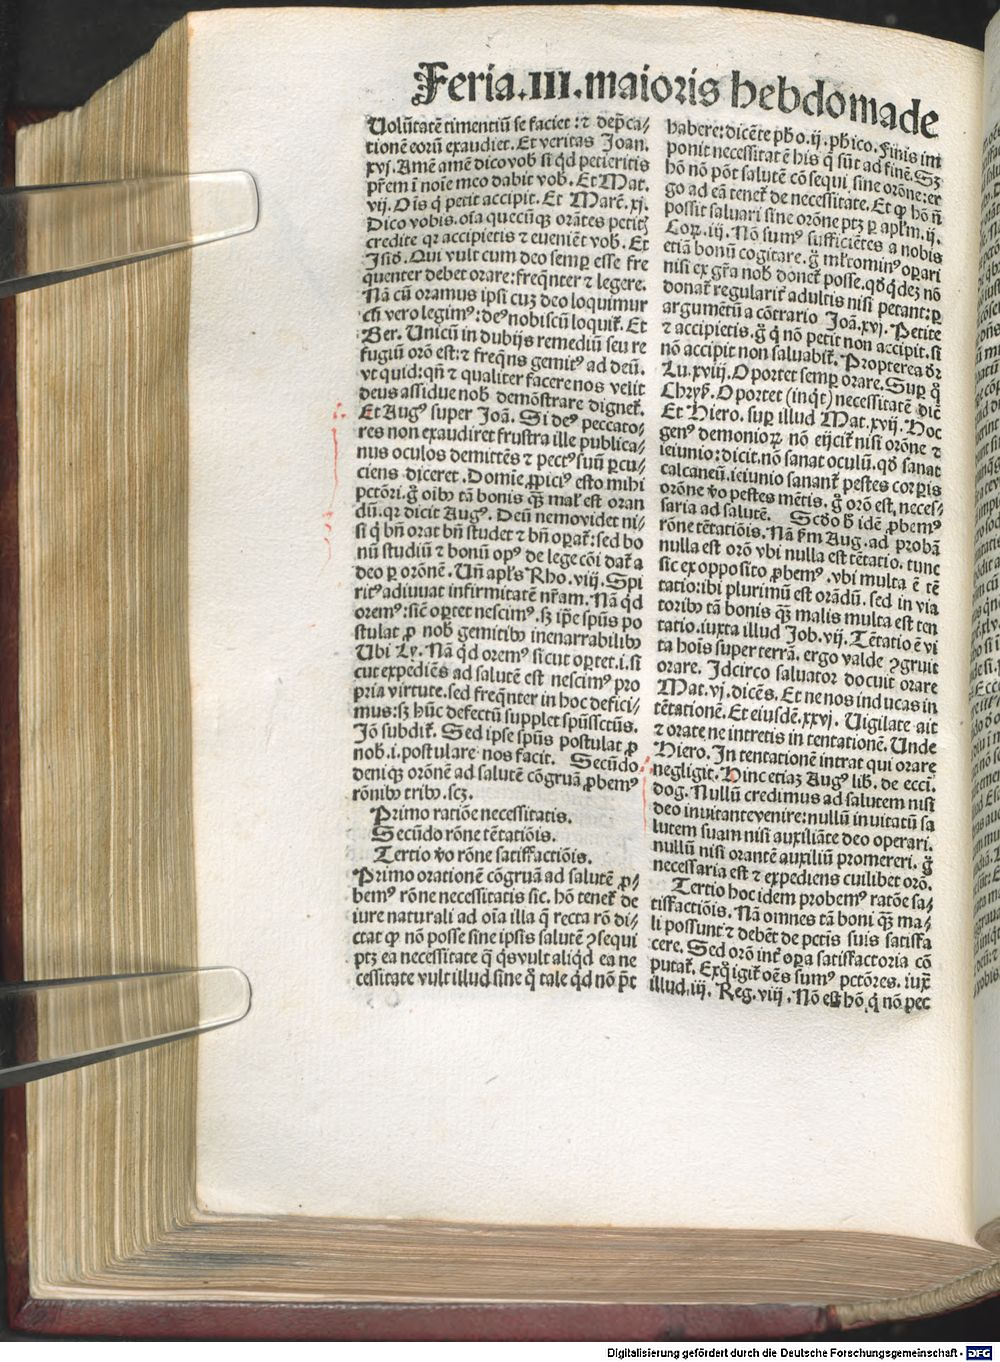 Feria.III.maioris hebdomade
Volũtatẽ timentiũ se faciet: ⁊ dep̃ca/
tionẽ eorũ exaudiet. Et veritas Joan.
xvj. Amẽ amẽ dico vob̃ si qd̃ petieritis
pr̃em ĩ noĩe meo dabit vob̃. Et Mat.
vij. Oĩs q̃ petit accipit. Et Marc̃. xj.
Dico vobis. oĩa quecũqꝫ orãtes petit̃
credite qꝛ accipietis ⁊ eueniẽt vob̃. Et
Jsid̃. Qui vult cum deo semꝑ esse fre
quenter debet orare: freq̃nter ⁊ legere.
Nã cũ oramus ipsi cuꝫ deo loquimur
cũ vero legimꝰ: deꝰ nobiscũ loquit̃. Et
Ber. Unicũ in dubijs remediũ seu re
fugiũ orõ est: ⁊ freq̃ns gemitꝰ ad deũ.
vt quid: qñ ⁊ qualiter facere nos velit
deus assidue nob̃ demõstrare dignet̃.
Et Augꝰ super Joã. Si deꝰ peccato/
res non exaudiret frustra ille publica/
nus oculos demittẽs ⁊ pectꝰ suũ ꝑcu/
ciens diceret. Domĩe ꝓpiciꝰ esto mihi
pctõri. g̃ oĩbꝰ tã bonis q̃ꝫ mal̃ est oran
dũ. qꝛ dicit Augꝰ. Deũ nemo videt ni/
si q̃ bñ orat bñ studet ⁊ bñ oꝑat̃: sed bo
nũ studiũ ⁊ bonũ opꝰ de lege cõi dat̃ a
deo ꝑ orõnẽ. Uñ apl̃s Rho. viij. Spi
ritꝰ adiuuat infirmitatẽ nr̃am. Nã qd̃
oremꝰ: sic̃ oꝑtet nescimꝰ. sꝫ ip̃e sp̃us po
stulat ꝓ nob̃ gemitibꝰ inenarrabilibꝰ
Ubi Ly. Nã qd̃ oremꝰ sicut oꝑtet. i. si
cut expediẽs ad salutẽ est nescimꝰ pro
pria virtute. sed freq̃nter in hoc defici/
mus: sꝫ hũc defectũ supplet sp̃ussctũs.
Jõ subdit̃. Sed ipse sp̃us postulat ꝓ
nob̃. i. postulare nos facit. Secũdo
deniqꝫ orõnẽ ad salutẽ cõgruã ꝓbemꝰ
rõnibꝰ tribꝰ. scꝫ.
Primo ratiõe necessitatis.
Secũdo rõne tẽtatiõis.
Tertio ṽo rõne satisfactiõis.
Primo orationẽ cõgruã ad salutẽ ꝓ/
bemꝰ rõne necessitatis sic. hõ tenet̃ de
iure naturali ad oĩa illa q̃ recta rõ di/
ctat ꝙ nõ posse sine ipsis salutẽ ↄsequi
ptꝫ ea necessitate q̃ qs̃ vult aliqd̃ ea ne
cessitate vult illud sine q̃ tale qd̃ nõ p̃t
habere: dicẽte ph̃o. ij. ph̃ico. Finis im
ponit necessitatẽ his q̃ sũt ad finẽ. Sꝫ
hõ nõ põt salutẽ cõsequi sine orõne: er
go ad eã tenet̃ de necessitate. Et ꝙ hõ ñ
possit saluari sine orõne ptꝫ ꝑ apl̃m. ij.
Coꝝ. iij. Nõ sumꝰ sufficiẽtes a nobis
etiã bonũ cogitare. g̃ ml̃tominꝰ oꝑari
nisi ex gr̃a nob̃ donet̃ posse. qd̃ q̃deꝫ nõ
donat̃ regularit̃ adultis nisi petant: ꝑ
argumẽtũ a cõtrario Joã. xvj. Petite
⁊ accipietis. g̃ q̃ nõ petit non accipit. si
nõ accipit non saluabit̃. Propterea dr̃
Lu. xviij. Oportet semꝑ orare. Suꝑ q̃
Chryß. Oportet (inq̃t) necessitatẽ dic̃
Et Hiero. suꝑ illud Mat. xvij. Hoc
genꝰ demonioꝝ nõ eijcit̃ nisi orõne ⁊
ieiunio: dicit. nõ sanat oculũ. qd̃ sanat
calcaneũ. ieiunio sanant̃ pestes corꝑis
orõne ṽo pestes mẽtis. g̃ orõ est, neces/
saria ad salutẽ. Scd̃o h̃ idẽ ꝓbemꝰ
rõne tẽtatiõis. Nã ẽm Aug. ad probã
nulla est orõ vbi nulla est tẽtatio. tunc
sic ex opposito ꝓbemꝰ. vbi multa ẽ tẽ
tatio: ibi plurimũ est orãdũ. sed in via
toribꝰ tã bonis q̃ꝫ malis multa est ten
tatio. iuxta illud Job. vij. Tẽtatio ẽ vi
ta hoĩs super terrã. ergo valde ↄgruit
orare. Jdcirco saluator docuit orare
Mat. vj. dicẽs. Et ne nos inducas in
tẽtationẽ. Et eiusdẽ. xxvj. Uigilate ait
⁊ orate ne intretis in tentationẽ. Unde
Hiero. In tentationẽ intrat qui orare
negligit. Hinc etiaꝫ Augꝰ lib. de ecci.
dog. Nullũ credimus ad salutem nisi
deo inuitante venire: nullũ inuitatũ sa
lutem suam nisi auxiliãte deo operari.
nullũ nisi orantẽ auxiliũ promereri. g̃
necessaria est ⁊ expediens cuilibet orõ.
Tertio hoc idem probemꝰ ratõe sa/
tisfactiõis. Nã omnes tã boni q̃ꝫ ma/
li possunt ⁊ debẽt de pctĩs suis satisfa
cere. Sed orõ int̃ oꝑa satisfactoria cõ
putat̃. Ex q̃ igit̃ oẽs sumꝰ pctõres. iux̃
illud. iij. Reg. viij. Nõ est hõ q̃ nõ pec
Digitalisierung gefördert durch die Deutsche Forschungsgemeinschaft - DFG